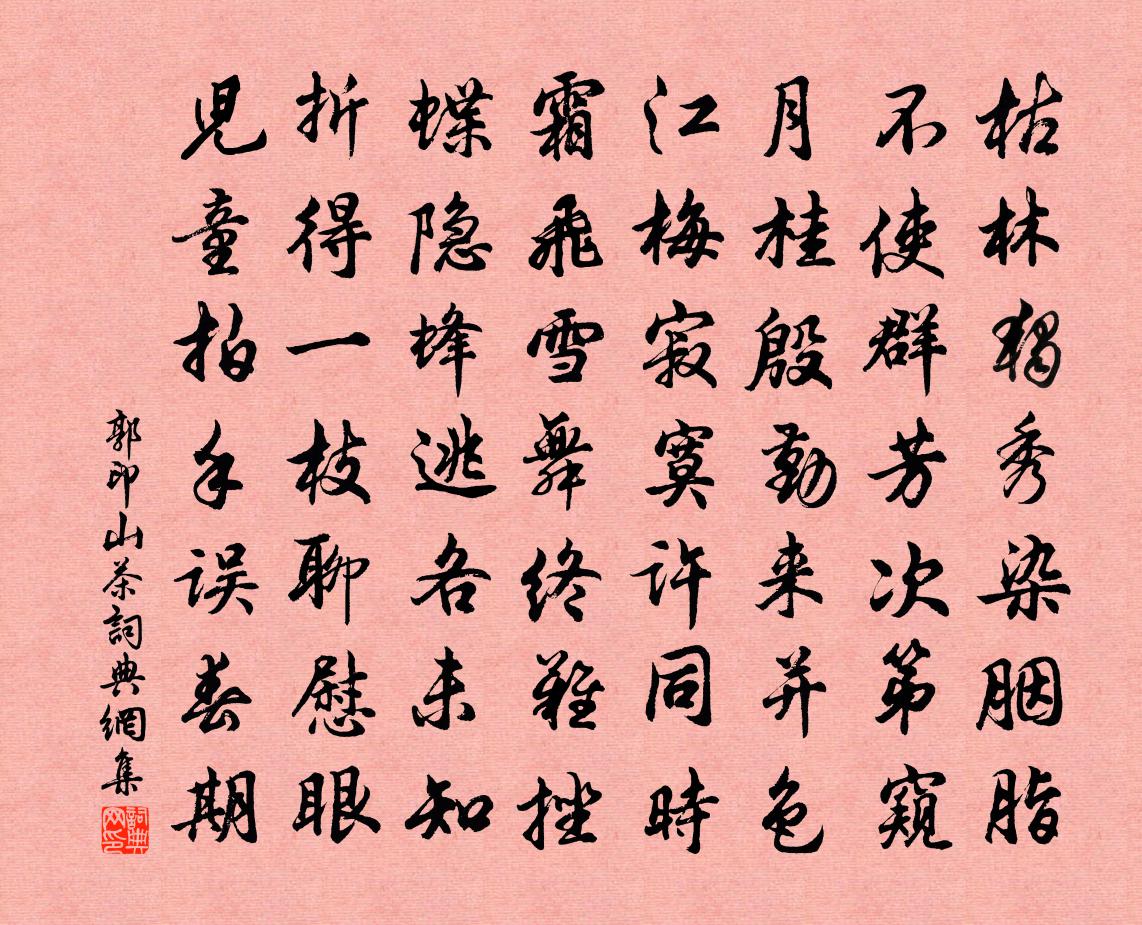 枯林獨秀染胭脂
不使群芳次第窺
月桂殷勤来并色
江梅寂寞許同時
霜飛雪舞終難挫
蝶隐蜂逃各未知
折得一枝聊慰眼
児童拍手误春期
郭印山茶詞典網集
詞典网印